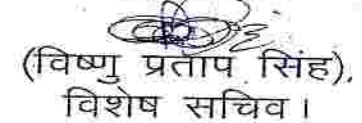 (विष्णु प्रताप सिंह),
विशेष सचिव।